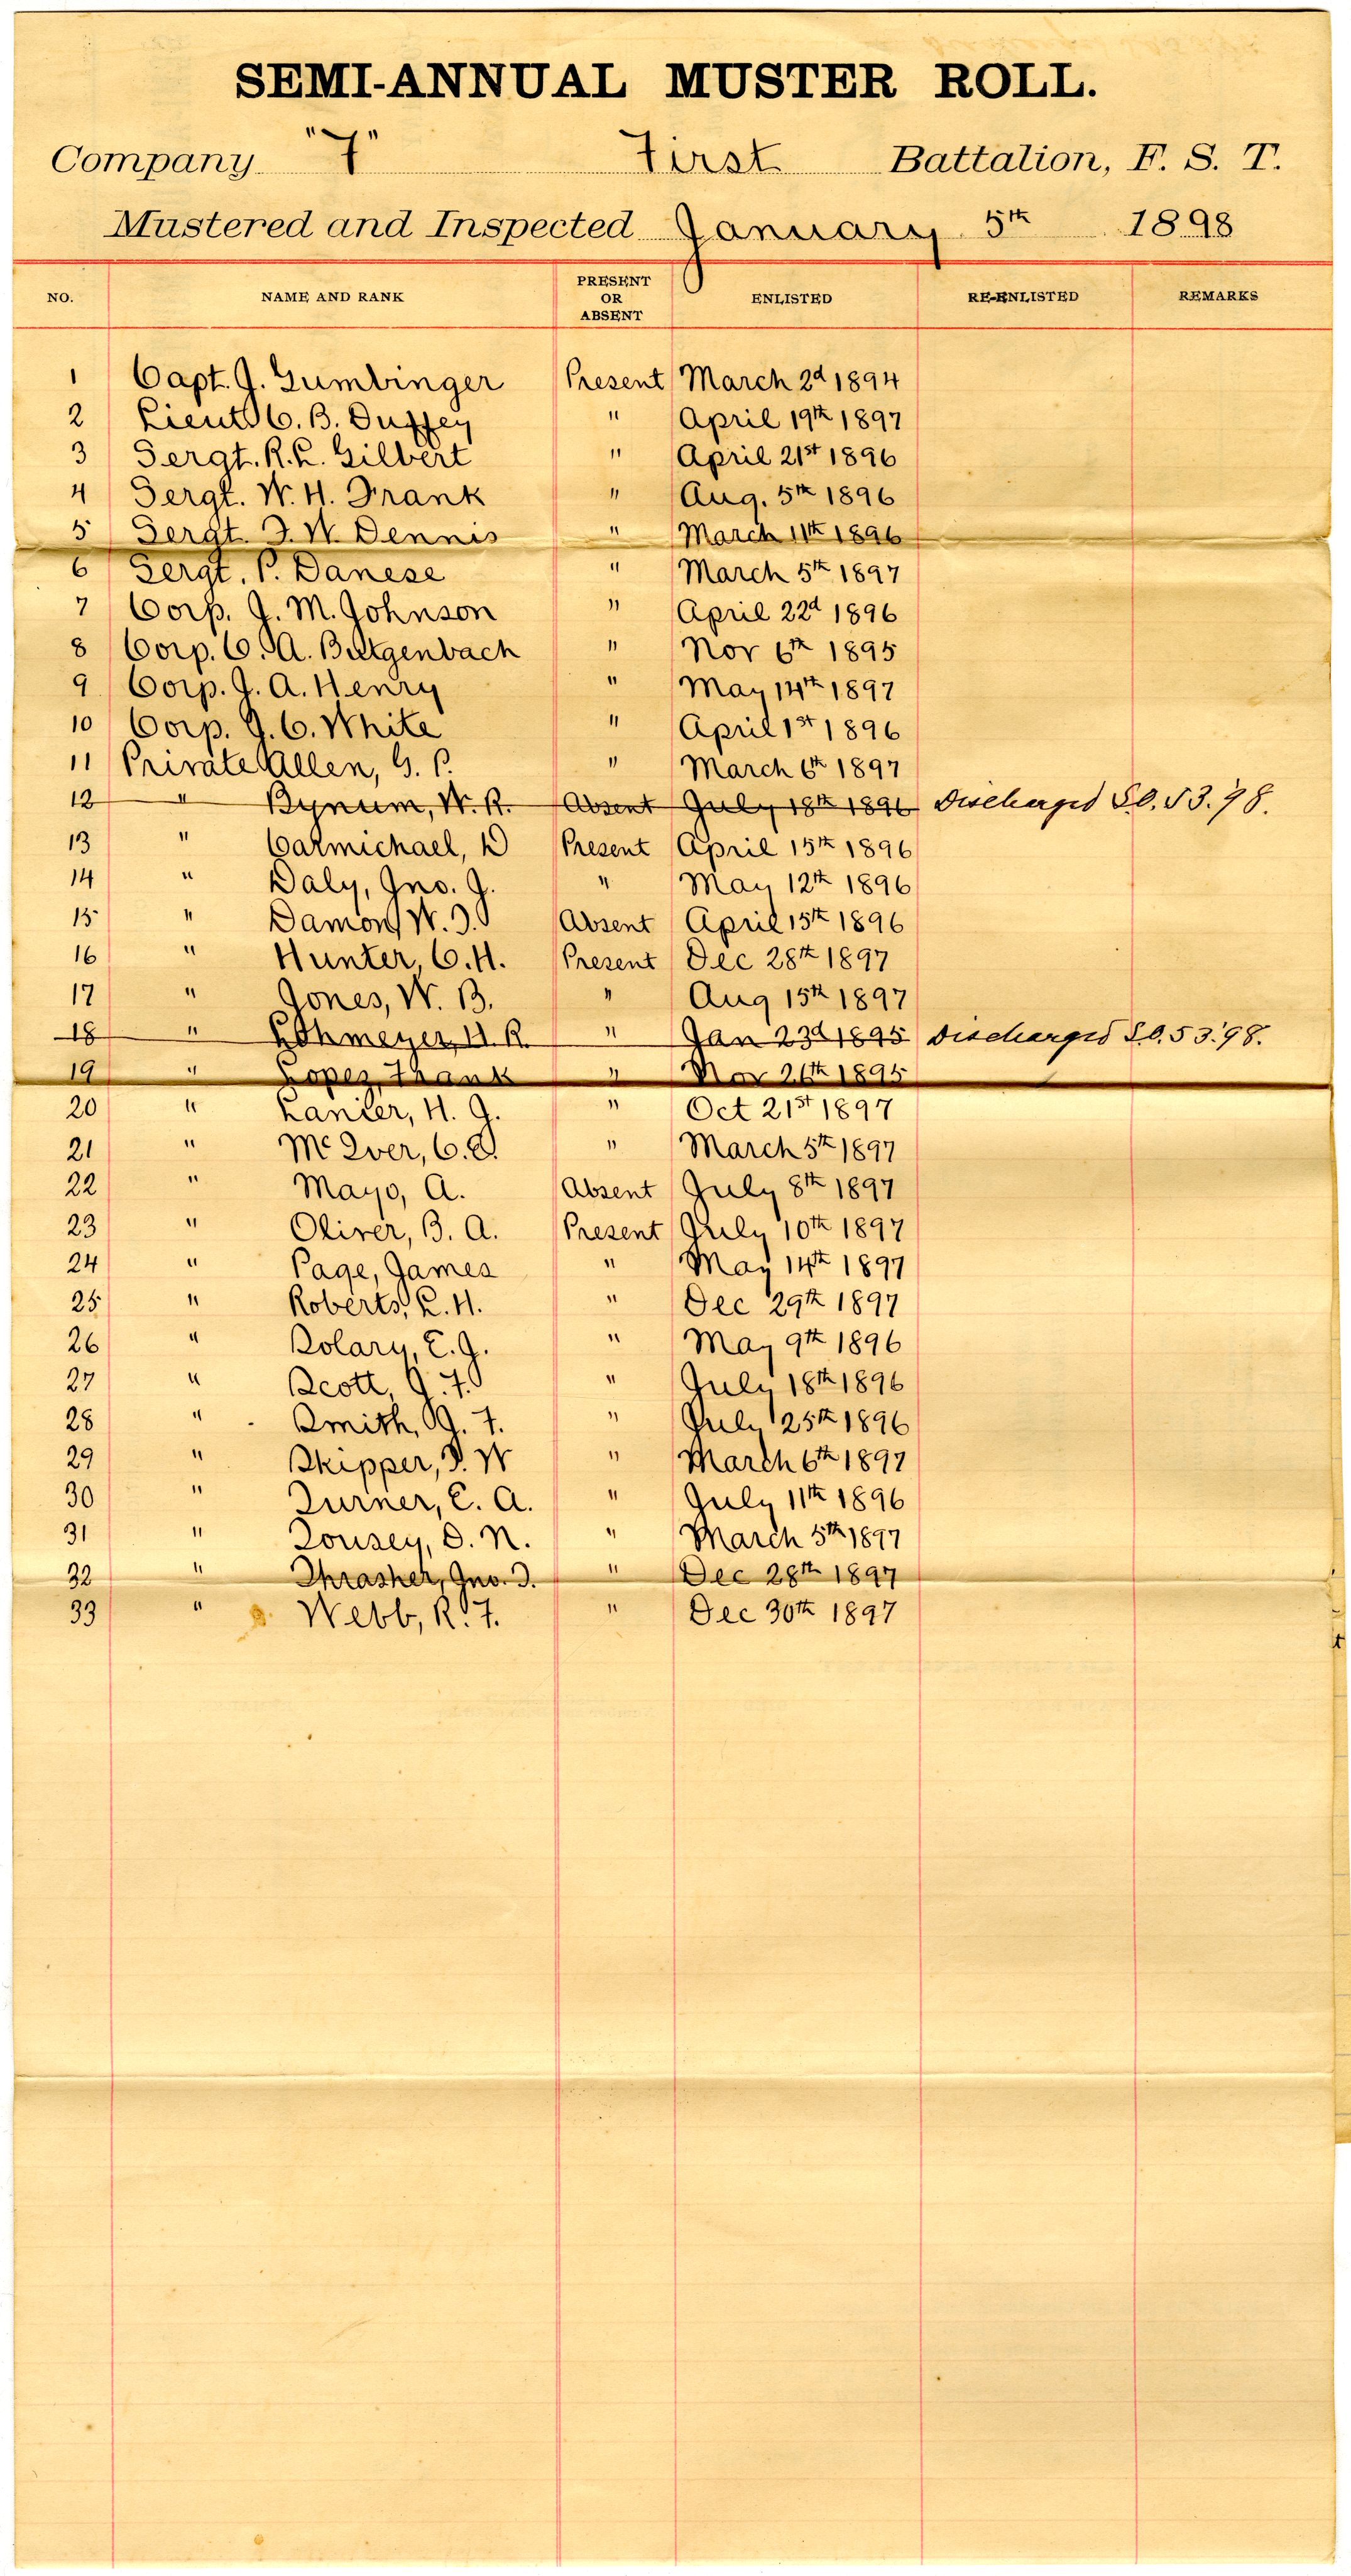 SEMI-ANNUAL MUSTER ROLL.
Company "F" First Battalion, F. S. T.
Mustered and Inspected January 5th 1898
NO. NAME AND RANK PRESENT OR ABSENT ENLISTED RE-ENLISTED REMARKS
1 Capt. J. Gumbinger Present March 2d 1894
2 Lieut C. B. Duffey " April 19th 1897
3 Sergt. R. L. Gilbert " April 21st 1896
4 Sergt. W. H. Frank " Aug. 5th 1896
5 Sergt. J. W. Dennis " March 11th 1896
6 Sergt. P. Danese " March 5th 1897
7 Corp. J. M. Johnson " April 22d 1896
8 Corp. C. A. Butgenbach " Nov 6th 1895
9 Corp. J. A. Henry " May 14th 1897
10 Corp. J. C. White " April 1st 1896
11 Private Allen, G. P. " March 6th 1897
12 " Bynum, W. R. Absent July 18th 1896 Discharged S.O. 53. '98.
13 " Carmichael, D Present April 15th 1896
14 " Daly, Jno. J. " May 12th 1896
15 " Damon, W. J. Absent April 15th 1896
16 " Hunter, C. H. Present Dec 28th 1897
17 " Jones, W. B. " Aug 15th 1897
18 " Lohmeyer, H. R. " Jan 23d 1895 Discharged S.O. 53. '98.
19 " Lopez, Frank " Nov 26th 1895
20 " Lanier, H. J. " Oct 21st 1897
21 " McIver, C. E. " March 5th 1897
22 " Mayo, A. Absent July 8th 1897
23 " Oliver, B. A. Present July 10th 1897
24 " Page, James " May 14th 1897
25 " Roberts, L. H. " Dec 29th 1897
26 " Solary, E. J. " May 9th 1896
27 " Scott, J. F. " July 18th 1896
28 " Smith, J. F. " July 25th 1896
29 " Skipper, J. W " March 6th 1897
30 " Turner, E. A. " July 11th 1896
31 " Tousey, O. N. " March 5th 1897
32 " Thrasher, Jno. T. " Dec 28th 1897
33 " Webb, R. F. " Dec 30th 1897